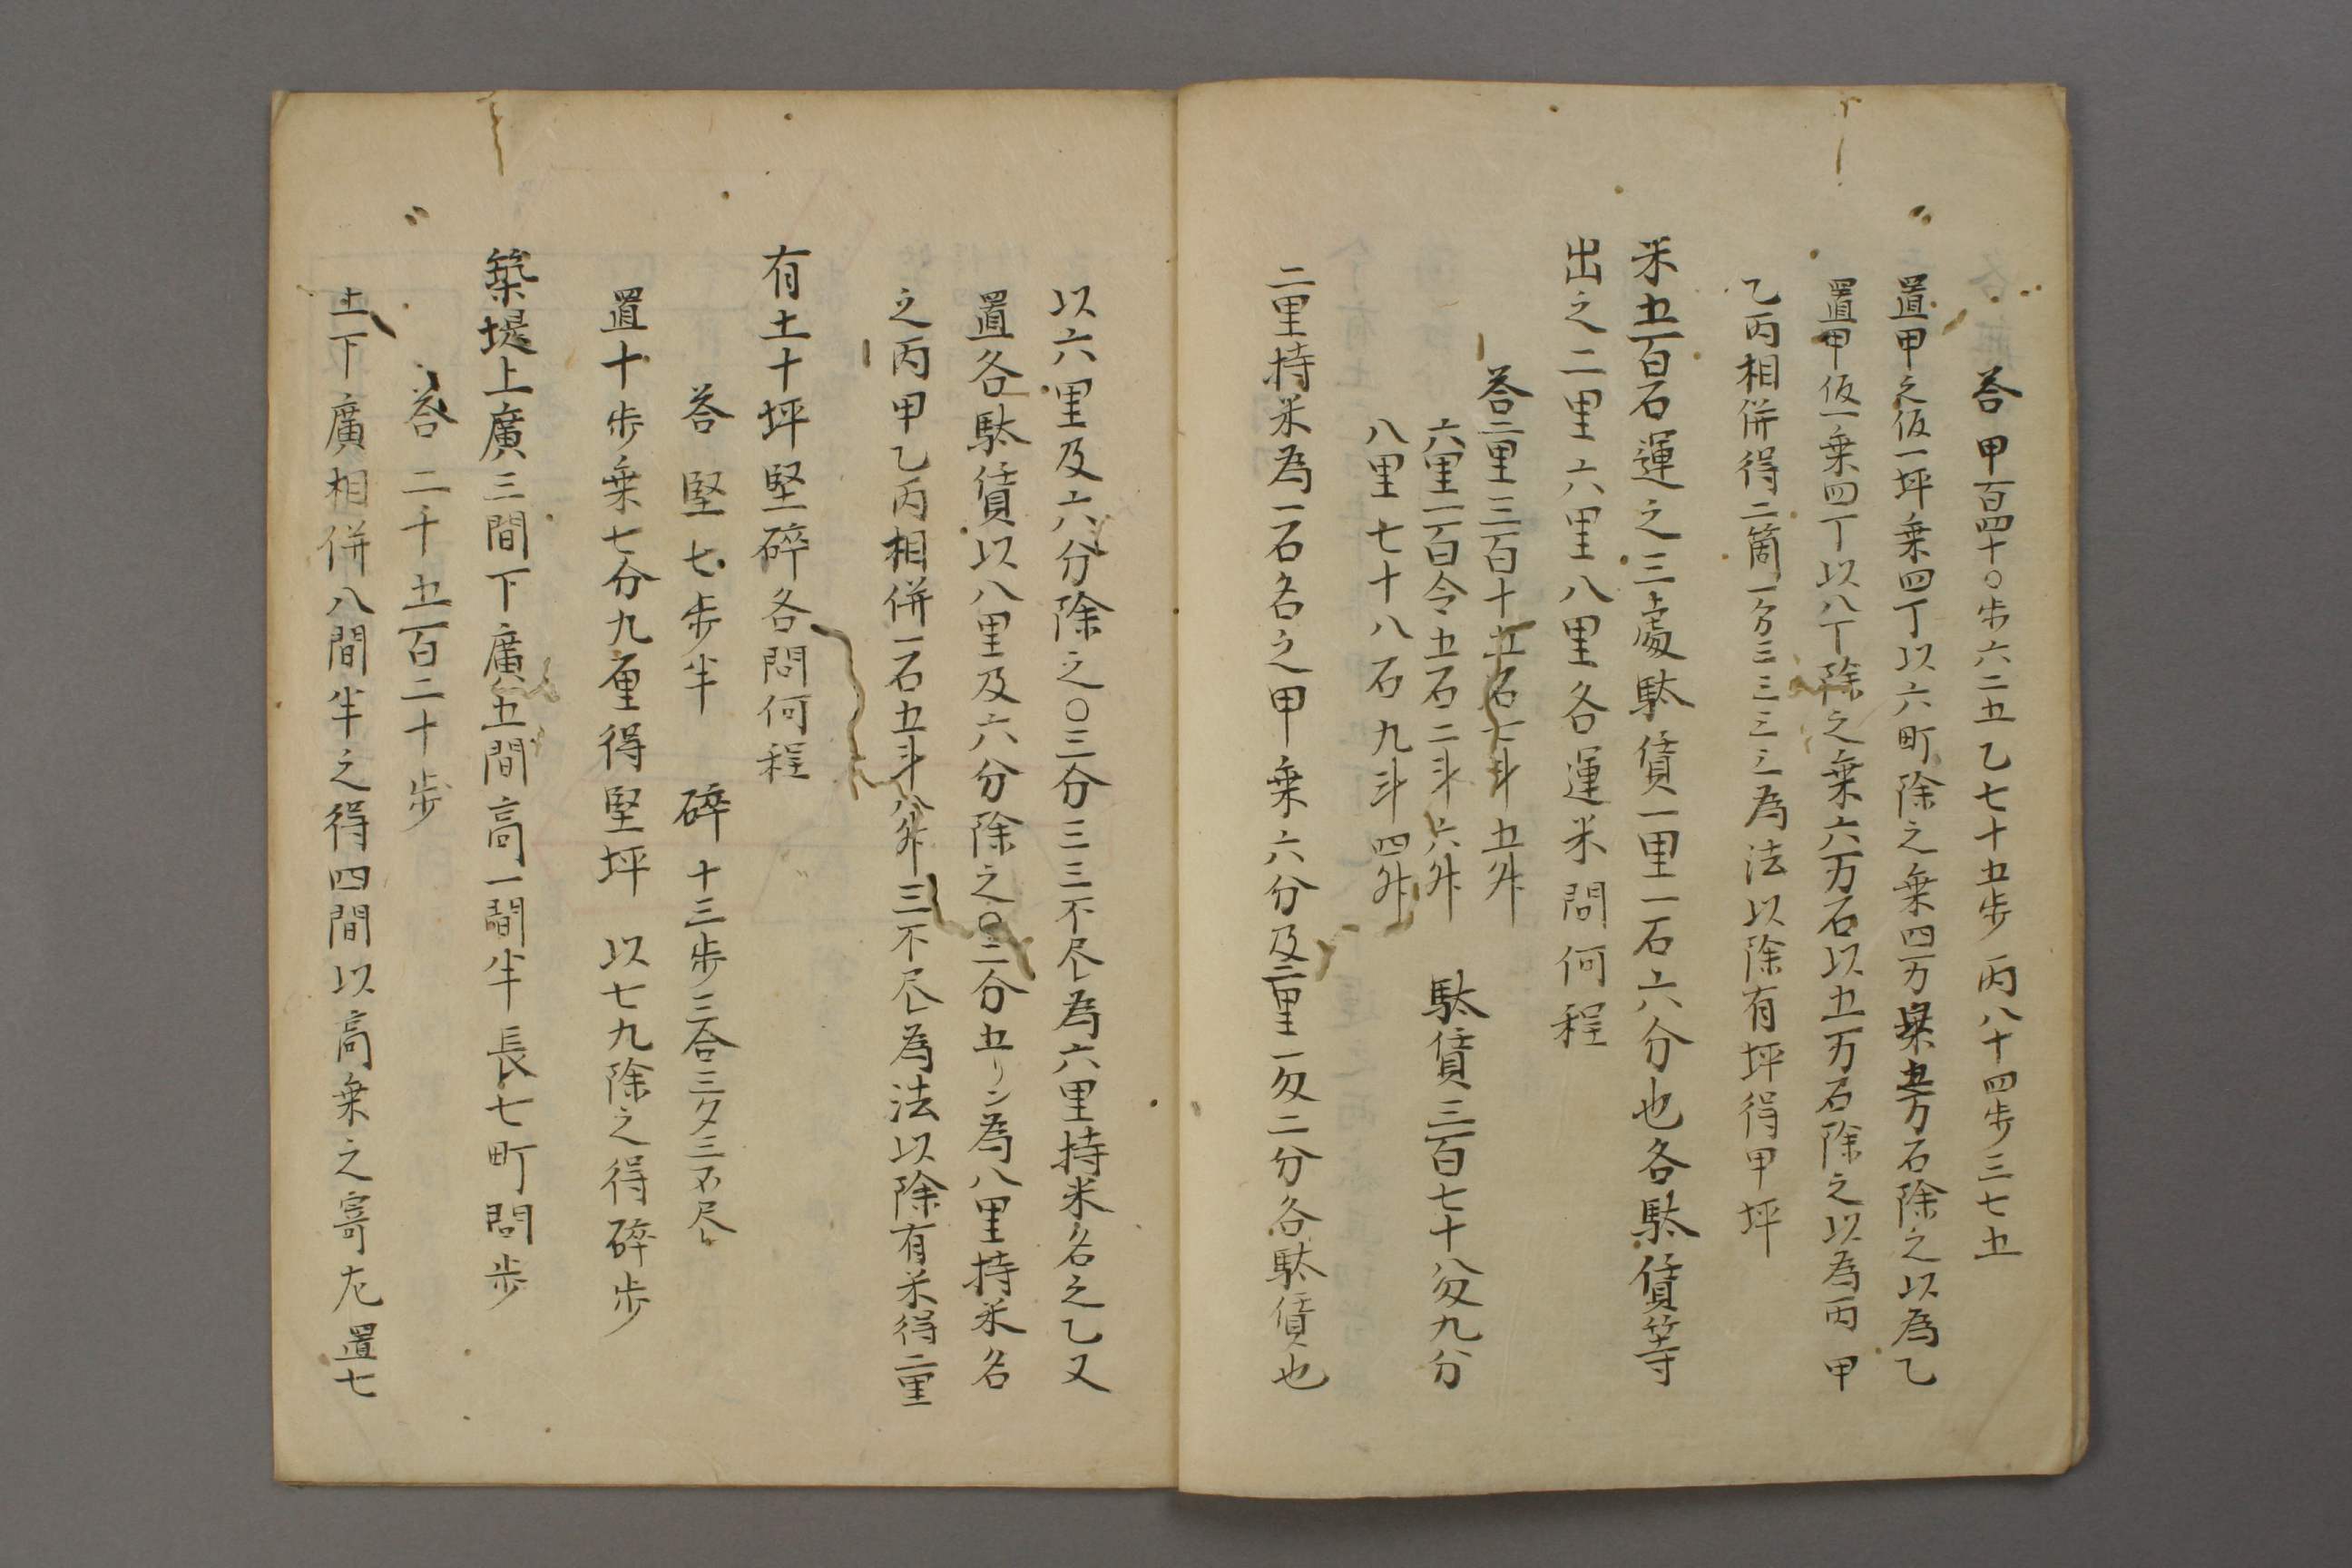 荅 甲百四十〇歩六二五 乙七十五歩 丙八十四歩三七五
置甲之仮一坪乗四丁以六町除之乗四万石除之以為乙
置甲仮一乗四丁以八丁除之乗六万石以五万石除之以為丙 甲
乙丙相併得二箇一分三三三三為法以除有坪得甲坪
米五百石運之三處駄賃一里一石六分也各駄賃等
出之二里六里八里各運米問何程
荅二里三百十五石七斗五舛
六里一百令五石二斗六舛 駄賃三百七十八匁九分
八里七十八石九斗四舛
二里持米為一石名之甲乗六分及二里一匁二分各駄賃也
以六里及六分除之〇三分三三不尽為六里持米名之乙又
置各駄賃以八里及六分除之〇二分五リン為八里持米名
之丙甲乙丙相併一石五斗八舛三不尽為法以除有米得二里
有土十坪堅碎各問何程
荅 堅七歩半 碎 十三歩三合三夕三不尽
置十歩乗七分九厘得堅坪 以七九除之得碎歩
築堤上廣三間下廣五間高一間半長七町問歩
荅 二千五百二十歩
土下廣相併八間半之得四間以高乗之寄左置七